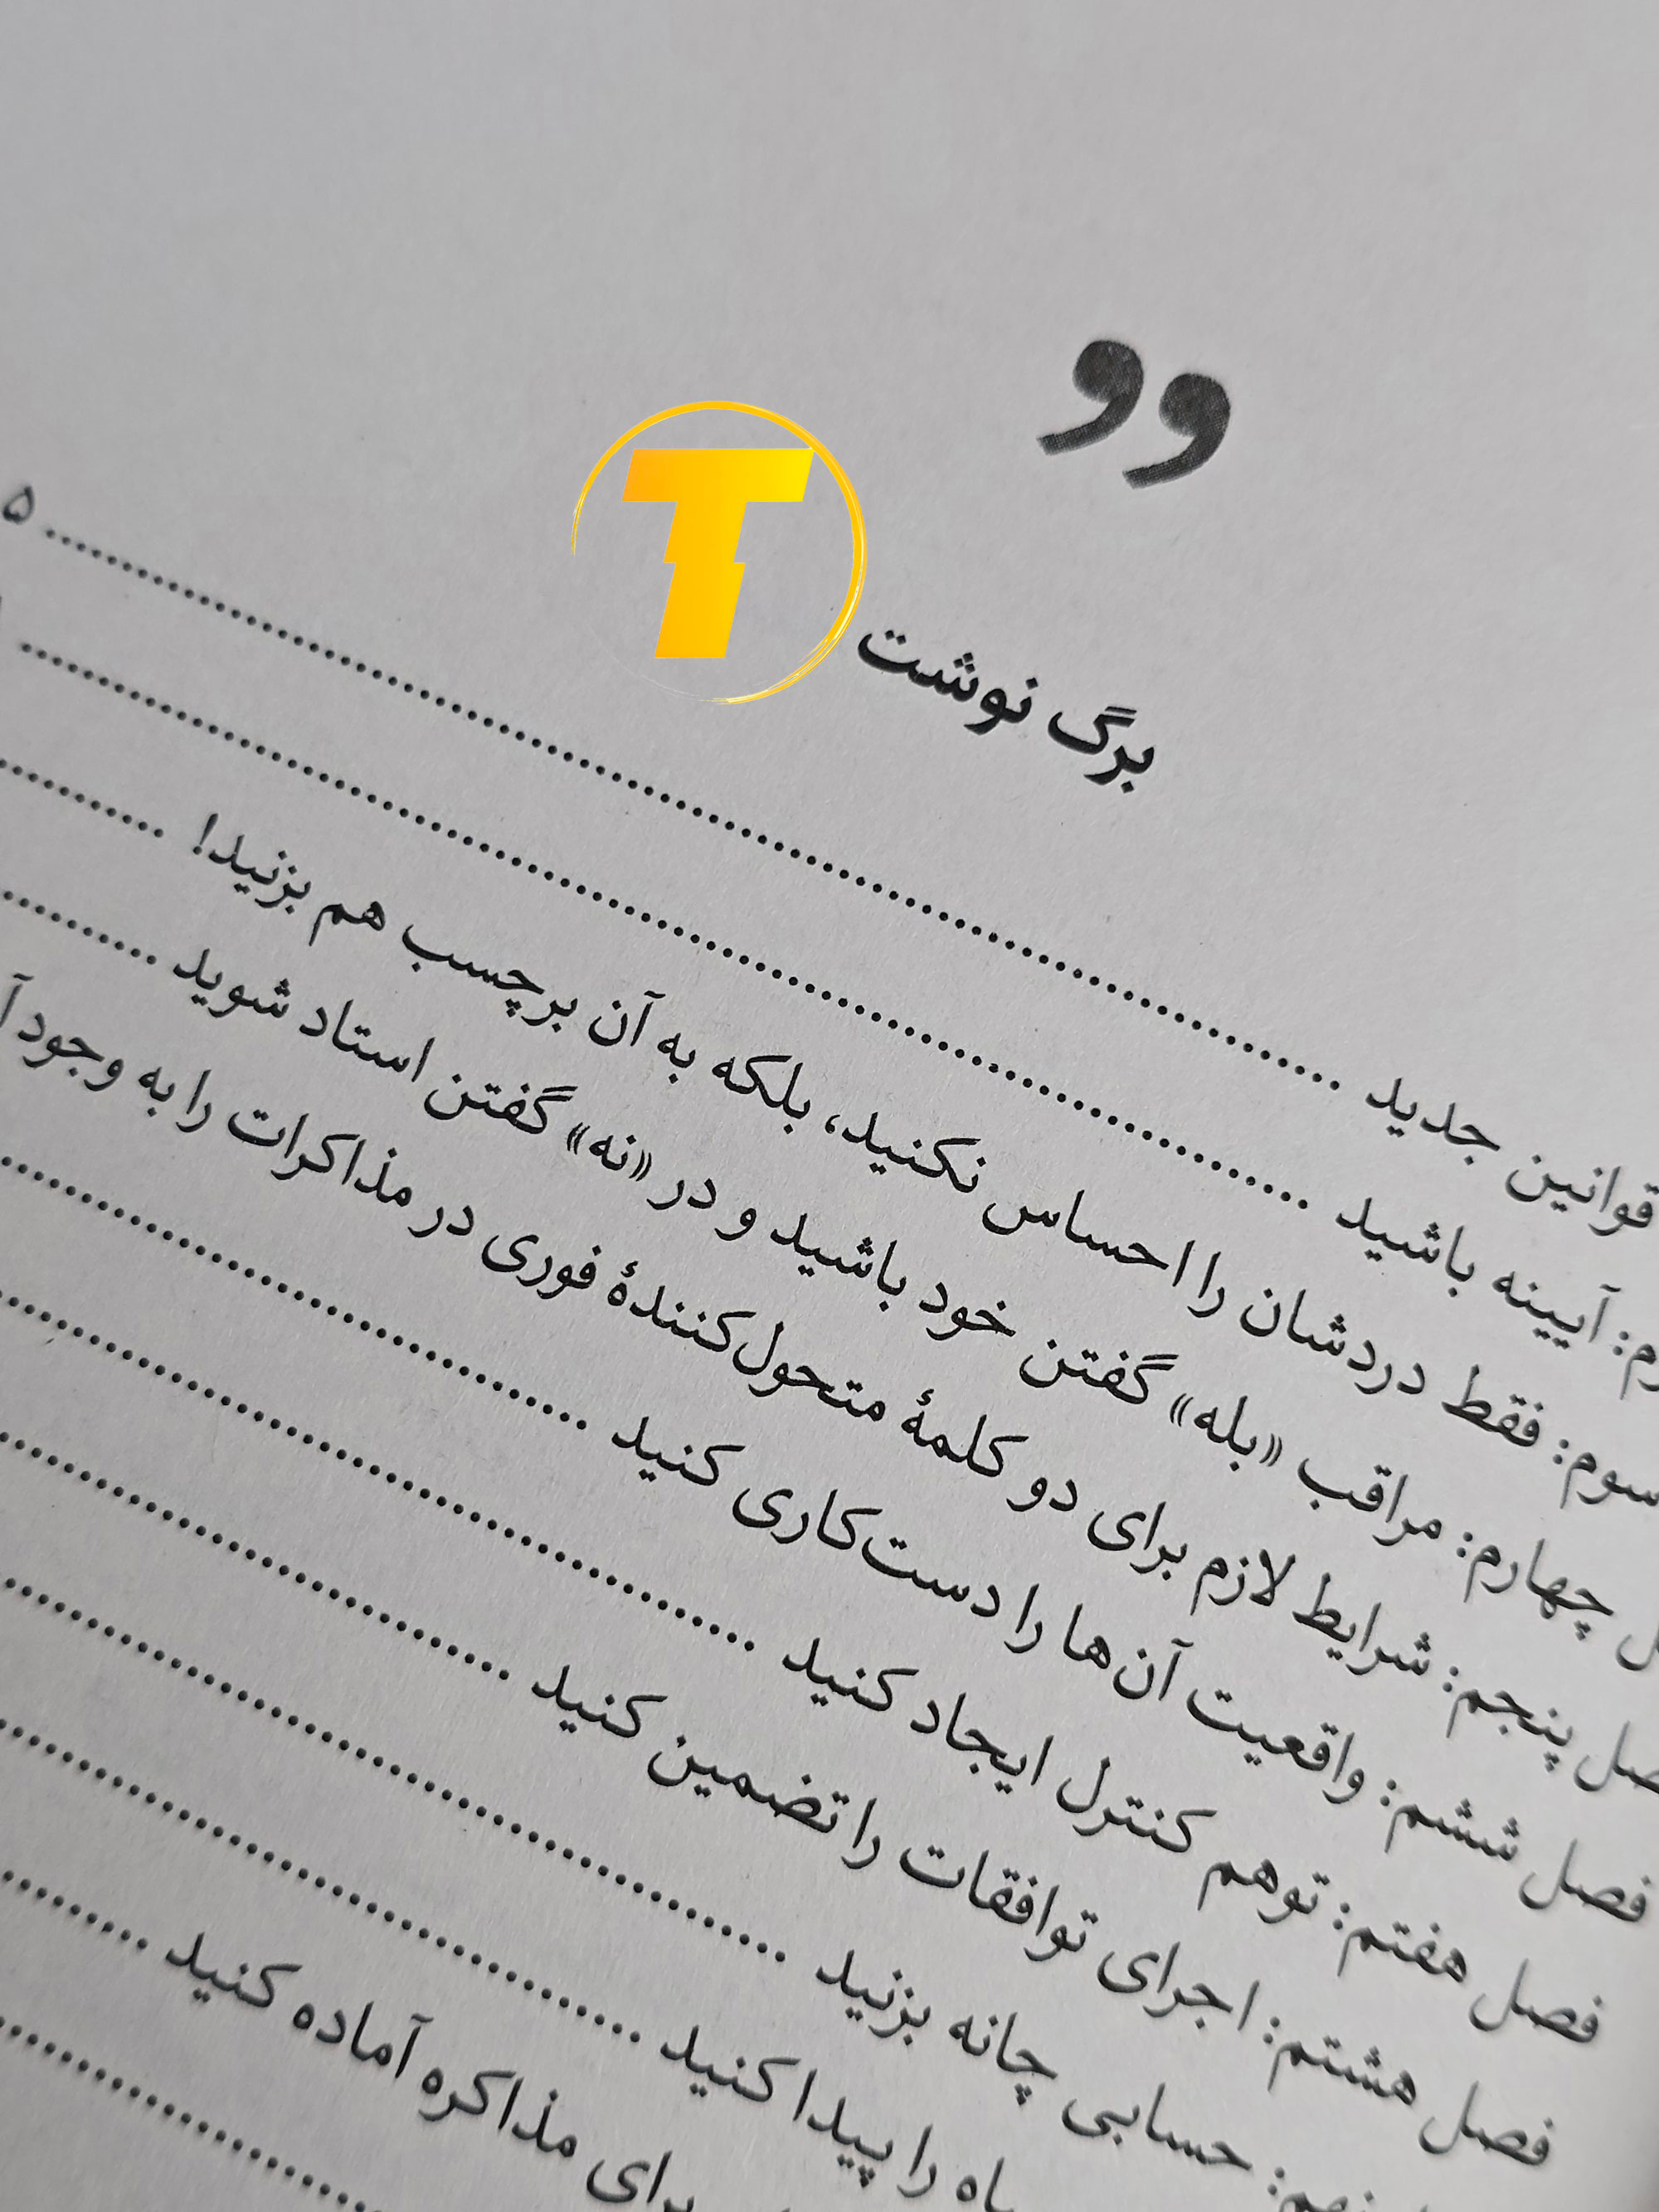 T
برگ نوشت
قوانین جدید ........ ۵
آیینه باشید ........
سوم: فقط دردشان را احساس نکنید، بلکه به آن برچسب هم بزنید! ........
چهارم: مراقب «بله» گفتن خود باشید و در «نه» گفتن استاد شوید ........
پنجم: شرایط لازم برای دو کلمهٔ متحول‌کنندهٔ فوری در مذاکرات را به وجود
فصل ششم: واقعیت آن‌ها را دست‌کاری کنید ........
فصل هفتم: توهم کنترل ایجاد کنید ........
فصل هشتم: اجرای توافقات را تضمین کنید ........
حسابی چانه بزنید ........
را پیدا کنید ........
برای مذاکره آماده کنید ........